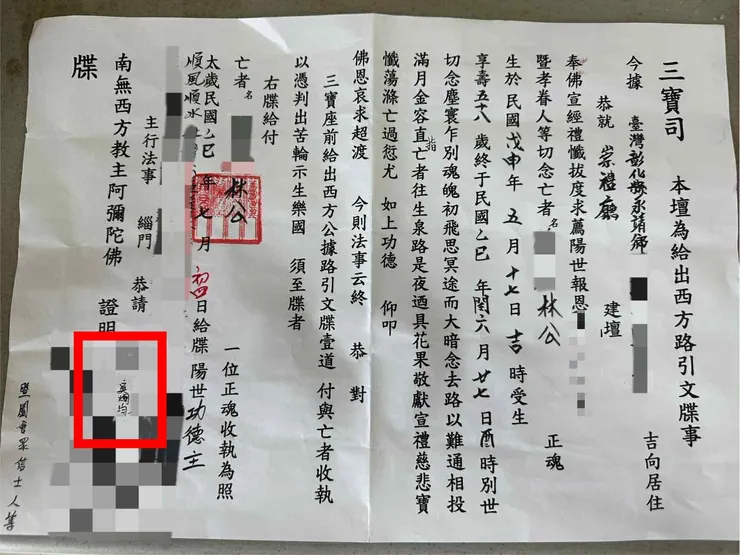 三寶司 本壇為給出西方路引文牒事
今據 臺灣彰化縣永靖鄉 吉向居住
恭就 崇禮廳 建壇
奉佛宣經禮懺拔度求薦陽世報恩
暨孝眷人等切念亡者名 林公 正魂
生於民國戊申年五月十七日吉時受生
享壽五十八歲終于民國乙巳年閏六月廿七日酉時別世
切念塵寰乍別魂魄初飛思冥途而大暗念去路以難通相投
滿月金容直指亡者往生泉路是夜迺具花果敬獻宣禮慈悲寶
懺蕩滌亡過愆尤 如上功德 仰叩
佛恩哀求超渡 今則法事云終 恭對
三寶座前給出西方公據路引文牒壹道 付與亡者收執
以憑判出苦輪示生樂國 須至牒者
右牒給付
亡者名 林公 一位正魂收執為照
太歲民國乙巳年七月初四日給牒 陽世功德主
順風順水
主行法事 緇門 恭請
南無西方教主阿彌陀佛 證明
牒